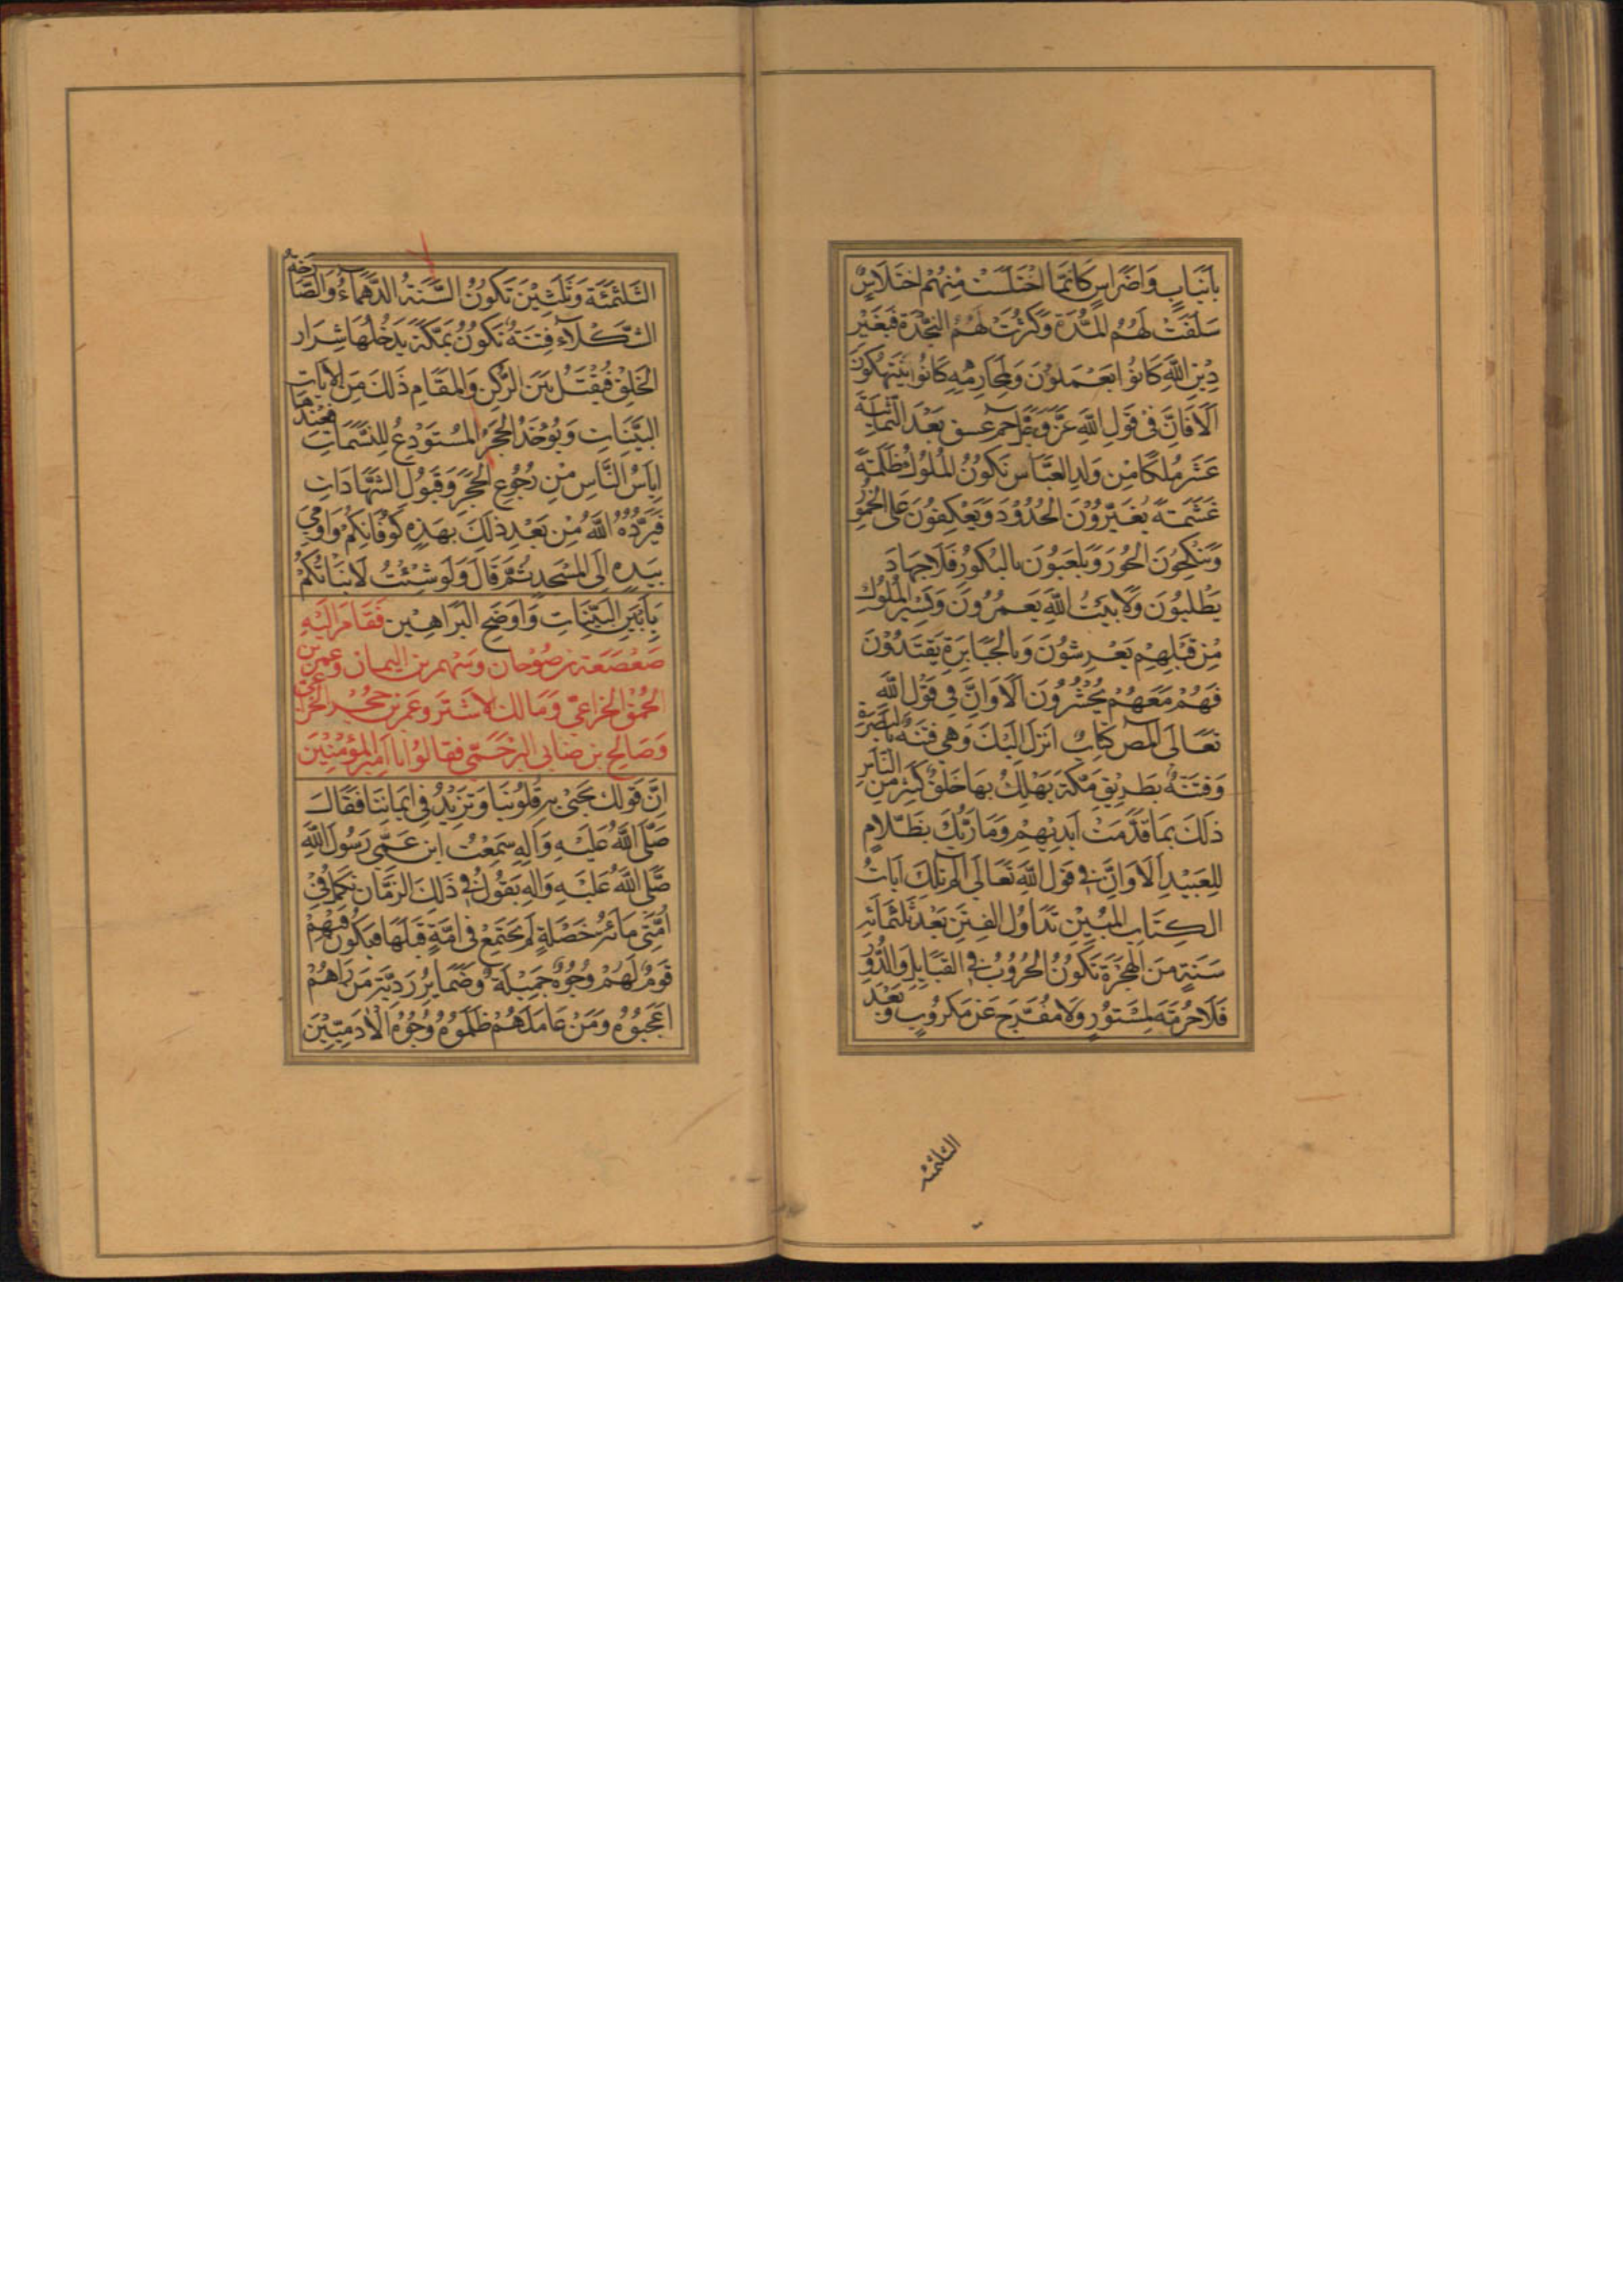 بِأَنْيَابٍ وَاَضْرَاسٍ كَاَنَّمَا اخْتَلَسَتْ مِنْهُمْ اخْتِلَاسٌ
سَلَفَتْ لَهُمُ المُدَّةُ وَكَثُرَتْ لَهُمُ النَّجْدَة فَبِغَيْرِ
دِيْنِ اللهِ كَانُوْا يَعْمَلُوْنَ وَلِمَحَارِمِهِ كَانُوْا يَنْتَهِكُوْنَ
اَلَا فَاِنَّ فِيْ قَوْلِ اللهِ عَزَّ وَجَلَّ حم عسق بَعْدَ الثَّمَانِيَةَ
عَشَرَ مُلْكًا مِن وَلَدِ العَبَّاس تَكُوْنُ المُلُوْك مُظْلِمَةً
غَشَمَةً يُغَيِّرُوْنَ الحُدُوْدَ وَيَعْكِفُوْنَ عَلَى الخُمُوْرِ
وَيَنْكِحُوْنَ الحُوْرَ وَيَلْعَبُوْنَ بالبُكُوْرِ فَلَا جِهَادَ
يَطْلُبُوْنَ وَلَا بَيْتُ اللهِ يَعْمُرُوْنَ وَبِسِيَرِ المُلُوْكِ
مِنْ قَبْلِهِمْ يَعْرِشُوْنَ وَبِالجَبَابِرَةِ يَقْتَدُوْنَ
فَهُمْ مَعَهُمْ يُحْشَرُوْنَ اَلَا وَاِنَّ فِي قَوْلِ اللهِ
تَعَالَى المص كِتَابٌ اُنْزِلَ اِلَيْكَ وَهِيَ فِتْنَةٌ بِالبَصْرَةِ
وَفِتْنَةٌ بِطَرِيْقِ مَكَّةَ يَهْلِكُ بِهَا خَلْقٌ كَثِيْرٌ مِنَ النَّاسِ
ذلِكَ بِمَا قَدَّمَتْ اَيْدِيْهِمْ وَمَا رَبُّكَ بِظَلَّامٍ
لِلْعَبِيْدِ اَلَا وَاِنَّ فِي قَوْلِ اللهِ تَعَالَى الر تِلْكَ آيَاتُ
الكِتَابِ المُبِيْنِ تَدَاوُلُ الفِتَنِ بَعْدَ ثَلٰثَمِائَةِ
سَنَةٍ مِنَ الهِجْرَةِ تَكُوْنُ الحُرُوْبُ فِي القَبَايِلِ وَالدُّوْرِ
فَلَا حُرْمَةَ لِمَسْتُوْرٍ وَلَا مُفَرِّجَ عَنْ مَكْرُوْبٍ وَبَعْدَ
الثلثمئة
الثَّلٰثَمِئَة وَثَلٰثِيْنَ تَكُوْنُ السَّنَةُ الدَّهْمَاءُ وَالصَّاخَّةُ
فِتْنَةٌ تَكُوْنُ بِمَكَّةَ يَدْخُلُهَا شِرَار
الخَلْقِ فَيُقْتَلُ بَيْنَ الرُّكْنِ وَالمَقَامِ ذلِكَ مِنَ الايَاتِ
البَيِّنَاتِ وَيُوْخَذُ الحَجَرُ المُسْتَوْدَعُ لِلنَّسَمَاتِ فَعِنْدَهَا
اِيَاسُ النَّاسِ مِنْ رُجُوْعِ الحَجَرِ وَقَبُوْلِ الشَّهَادَاتِ
فَيَرُدُّهُ اللهُ مِنْ بَعْدِ ذلِكَ بِهَذِهِ كُوْفَانِكُمْ وَاَوْمَى
بِيَدِهِ اِلَى المَسْجِدِ ثُمَّ قَالَ وَلَوْ شِئْتُ لَانْبَاتُكُمْ
بِاَبْيَنِ البَيِّنَاتِ وَاَوْضَحِ البَرَاهِيْن فَقَامَ اِلَيْهِ
صَعْصَعَة بن صُوْحَان وَسَهْم بن اليمان وعمر بن
الحُمْق الخزاعِيّ وَمَالِك الاشتر وعَمر بن حجر الخزاعي
وَصَالِح بن ضابي البرخمي فقالُوْا يا اَمِيْر المُؤْمِنِيْنَ
اِنَّ قَوْلَكَ يَحْيَىْ بِهِ قُلُوْبُنَا وَتَزِيْدُ فِي اِيْمَانِنَا فَقَالَ
صَلَّى اللهُ عَلَيْهِ وَآلِهِ سَمِعْتُ ابن عَمِّي رَسُوْلَ اللهِ
صَلَّى اللهُ عَلَيْهِ وَالِهِ يَقُوْلُ فِي ذلِكَ الزَّمَانِ يَكْمُلُ فِيْ
اُمَّتِي مِائَةُ خَصْلَةٍ لَمْ يَجْتَمِعْ فِي اُمَّةٍ قَبْلَهَا فَيَكُوْنُ فِيْهِمْ
قَوْمٌ لَهُمْ وُجُوْهٌ جَمِيْلَةٌ وَضَمَايِرُ رَدِيَّة مَنْ رَاهُمْ
اعْجَبُوْهُ وَمَنْ عَامَلَهُمْ ظَلَمُوْهُ وُجُوْهُ الْادَمِيِّيْنَ